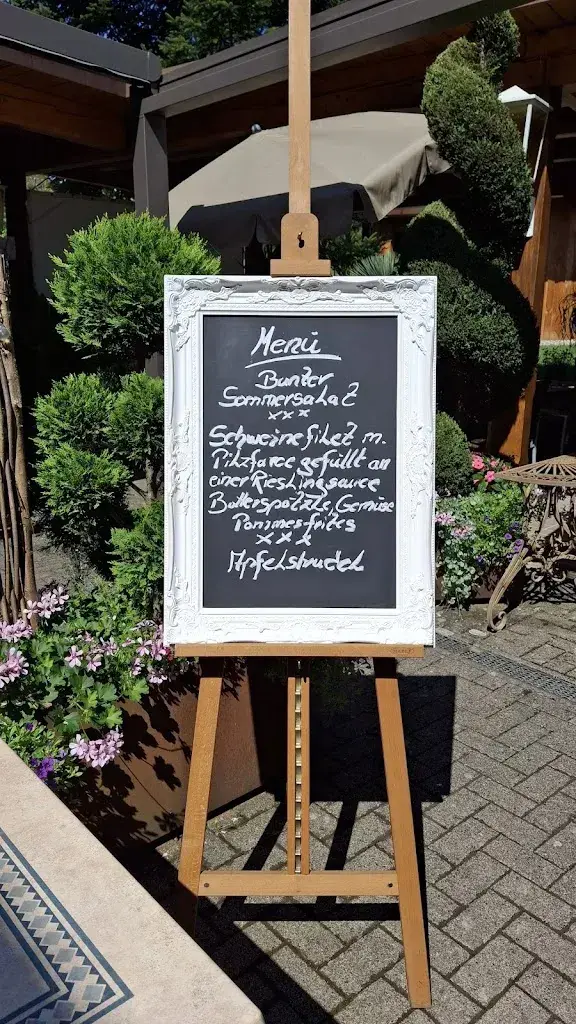 Menü
Bunter
Sommersalat
xxx
Schweinefilet m.
Pilzfarce gefüllt an
einer Rieslingsauce
Butterspätzle, Gemüse
Pommesfrites
xxx
Apfelstrudel